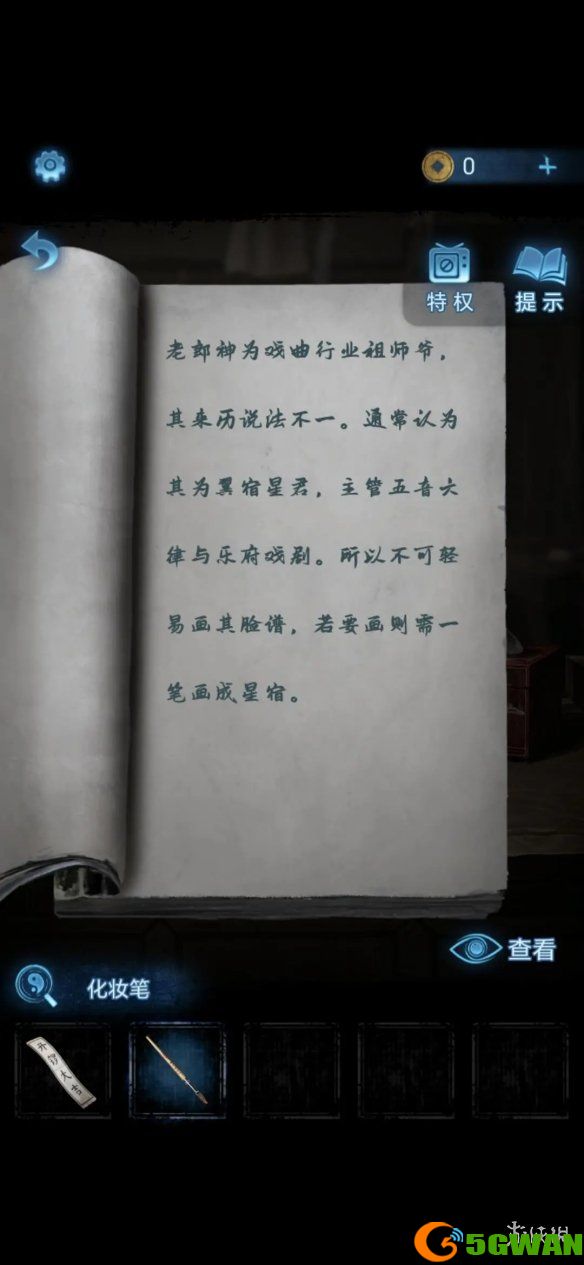 0
特权
提示
老郎神为戏曲行业祖师爷，
其来历说法不一。通常认为
其为翼宿星君，主管五音六
律与乐府戏剧。所以不可轻
易画其脸谱，若要画则需一
笔画成星宿。
查看
化妆笔
开锣大吉
5GWAN